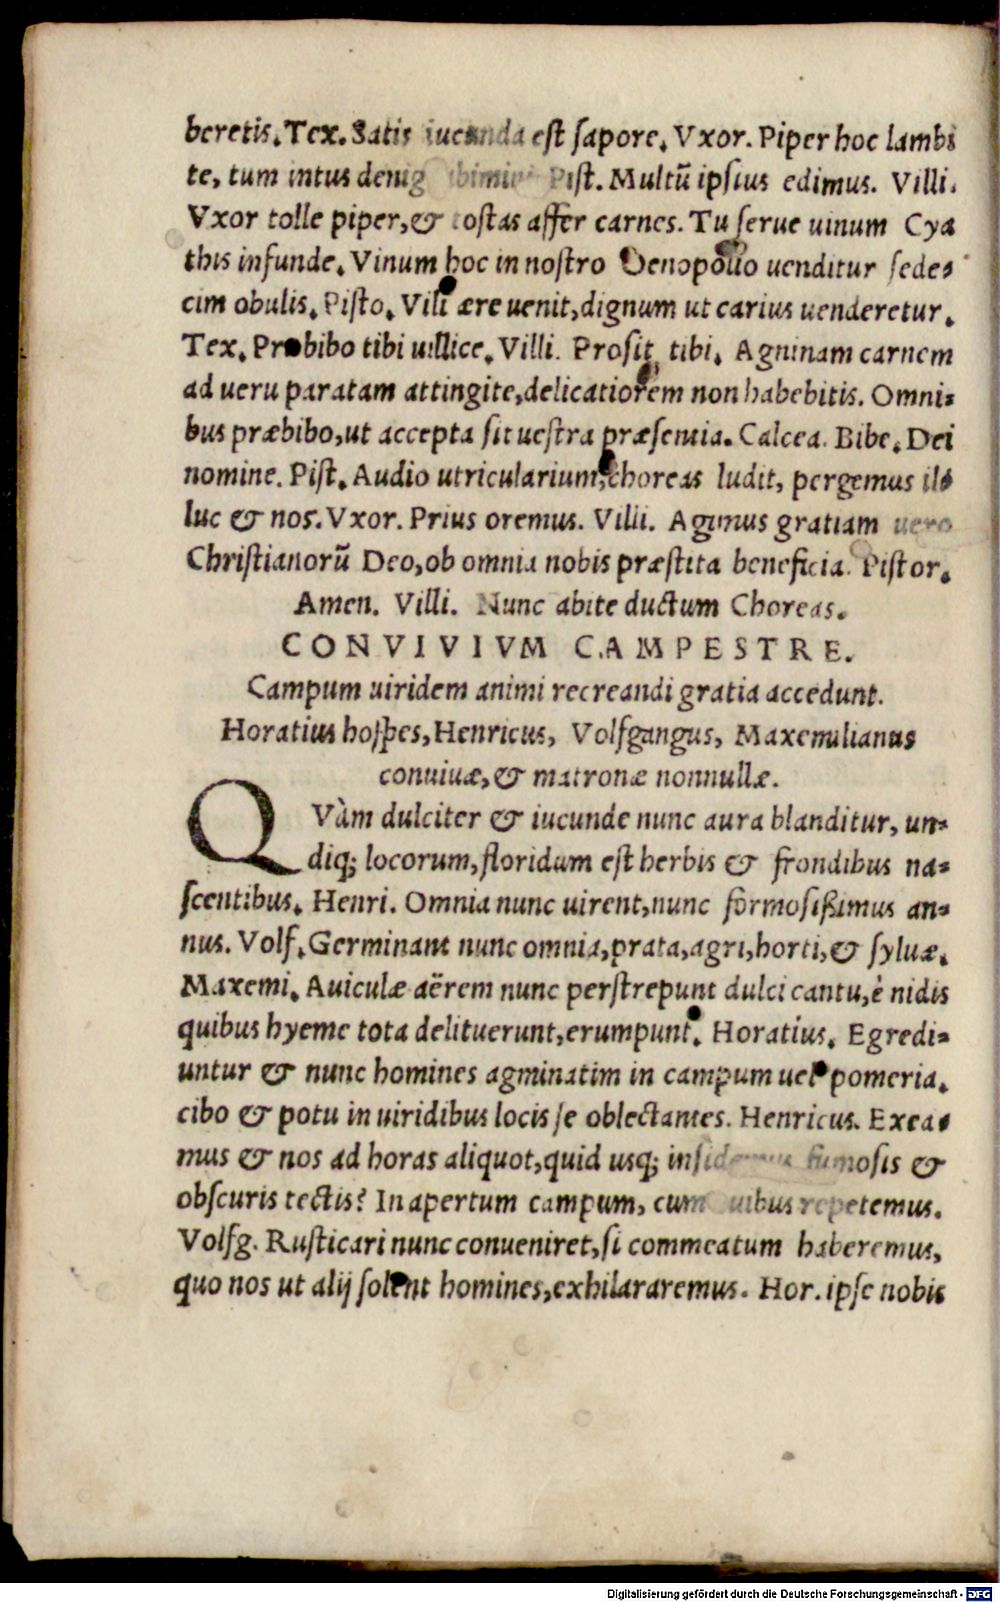 beretis. Tex. Satis iucunda est sapore. Vxor. Piper hoc lambi
te, tum intus Pist. Multũ ipsius edimus. Villi.
Vxor tolle piper, & tostas affer carnes. Tu serue uinum Cya
this infunde. Vinum hoc in nostro Oenopolio uenditur sede-
cim obulis. Pisto. Vili ære uenit, dignum ut carius uenderetur.
Tex. Præbibo tibi uillice. Villi. Prosit tibi. Agninam carnem
ad ueru paratam attingite, delicatiorem non habebitis. Omni-
bus præbibo, ut accepta sit uestra præsentia. Calcea. Bibe. Dei
nomine. Pist. Audio utricularium, choreas ludit, pergemus il-
luc & nos. Vxor. Prius oremus. Villi. Agimus gratiam uero
Christianorũ Deo, ob omnia nobis præstita beneficia. Pistor.
Amen. Villi. Nunc abite ductum Choreas.
CONVIVIVM CAMPESTRE.
Campum uiridem animi recreandi gratia accedunt.
Horatius hospes, Henricus, Volfgangus, Maxemilianus
conuiuæ, & matronæ nonnullæ.
QVàm dulciter & iucunde nunc aura blanditur, un-
diq; locorum, floridum est herbis & frondibus na-
scentibus. Henri. Omnia nunc uirent, nunc formosißimus an-
nus. Volf. Germinant nunc omnia, prata, agri, horti, & syluæ.
Maxemi. Auiculæ aërem nunc perstrepunt dulci cantu, è nidis
quibus hyeme tota delituerunt, erumpunt. Horatius. Egredi-
untur & nunc homines agminatim in campum uel pomeria.
cibo & potu in uiridibus locis se oblectantes. Henricus. Exea-
mus & nos ad horas aliquot, quid usq; insidemus fumosis &
obscuris tectis? In apertum campum, cum repetemus.
Volfg. Rusticari nunc conueniret, si commeatum haberemus,
quo nos ut alij solent homines, exhilararemus. Hor. ipse nobis
Digitalisierung gefördert durch die Deutsche Forschungsgemeinschaft - DFG